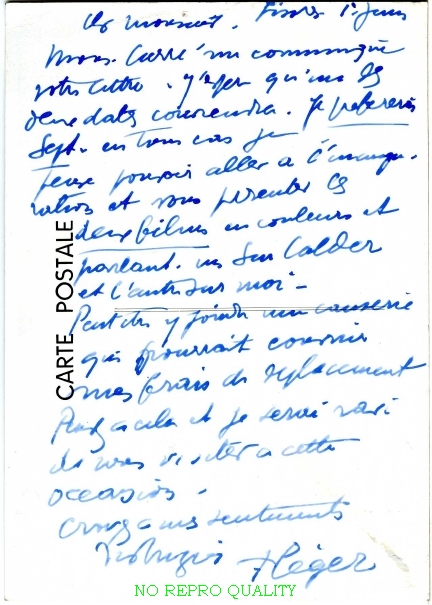 Cher monsieur. Lisores 1er Juin
Mons. Carré me communique
votre lettre. J'espère qu'une des
deux dates conviendra. Je préférerais
Sept. en tous cas je
peux pouvoir aller à l'inaugu-
ration et vous présenter les
deux films en couleurs et
parlant. un sur Calder
et l'autre sur moi -
Peut être y joindre une causerie
qui pourrait couvrir
mes frais de déplacement
à cela et je serai ravi
de vous visiter à cette
occasion.
Croyez à mes sentiments
F Léger
CARTE POSTALE
NO REPRO QUALITY